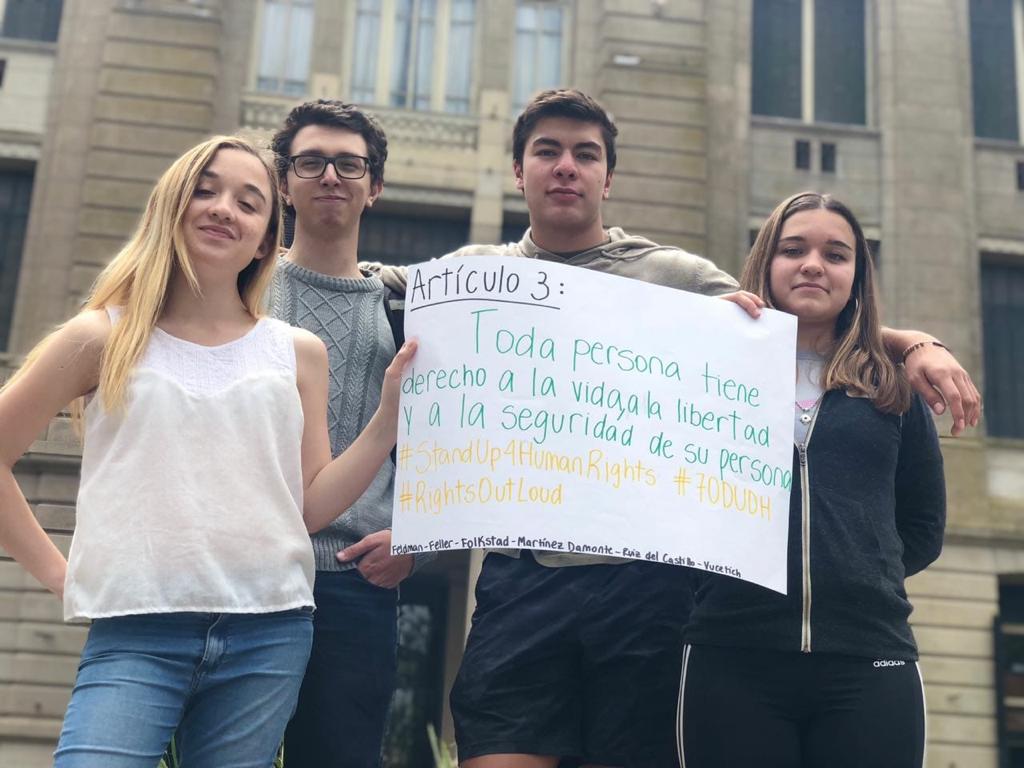 Artículo 3:
Toda persona tiene
derecho a la vida, a la libertad
y a la seguridad de su persona
#StandUp4HumanRights #70DUDH
#RightsOutLoud
Feldman - Feller - Folkstad - Martínez Damonte - Ruiz del Castillo - Vucetich
adidas